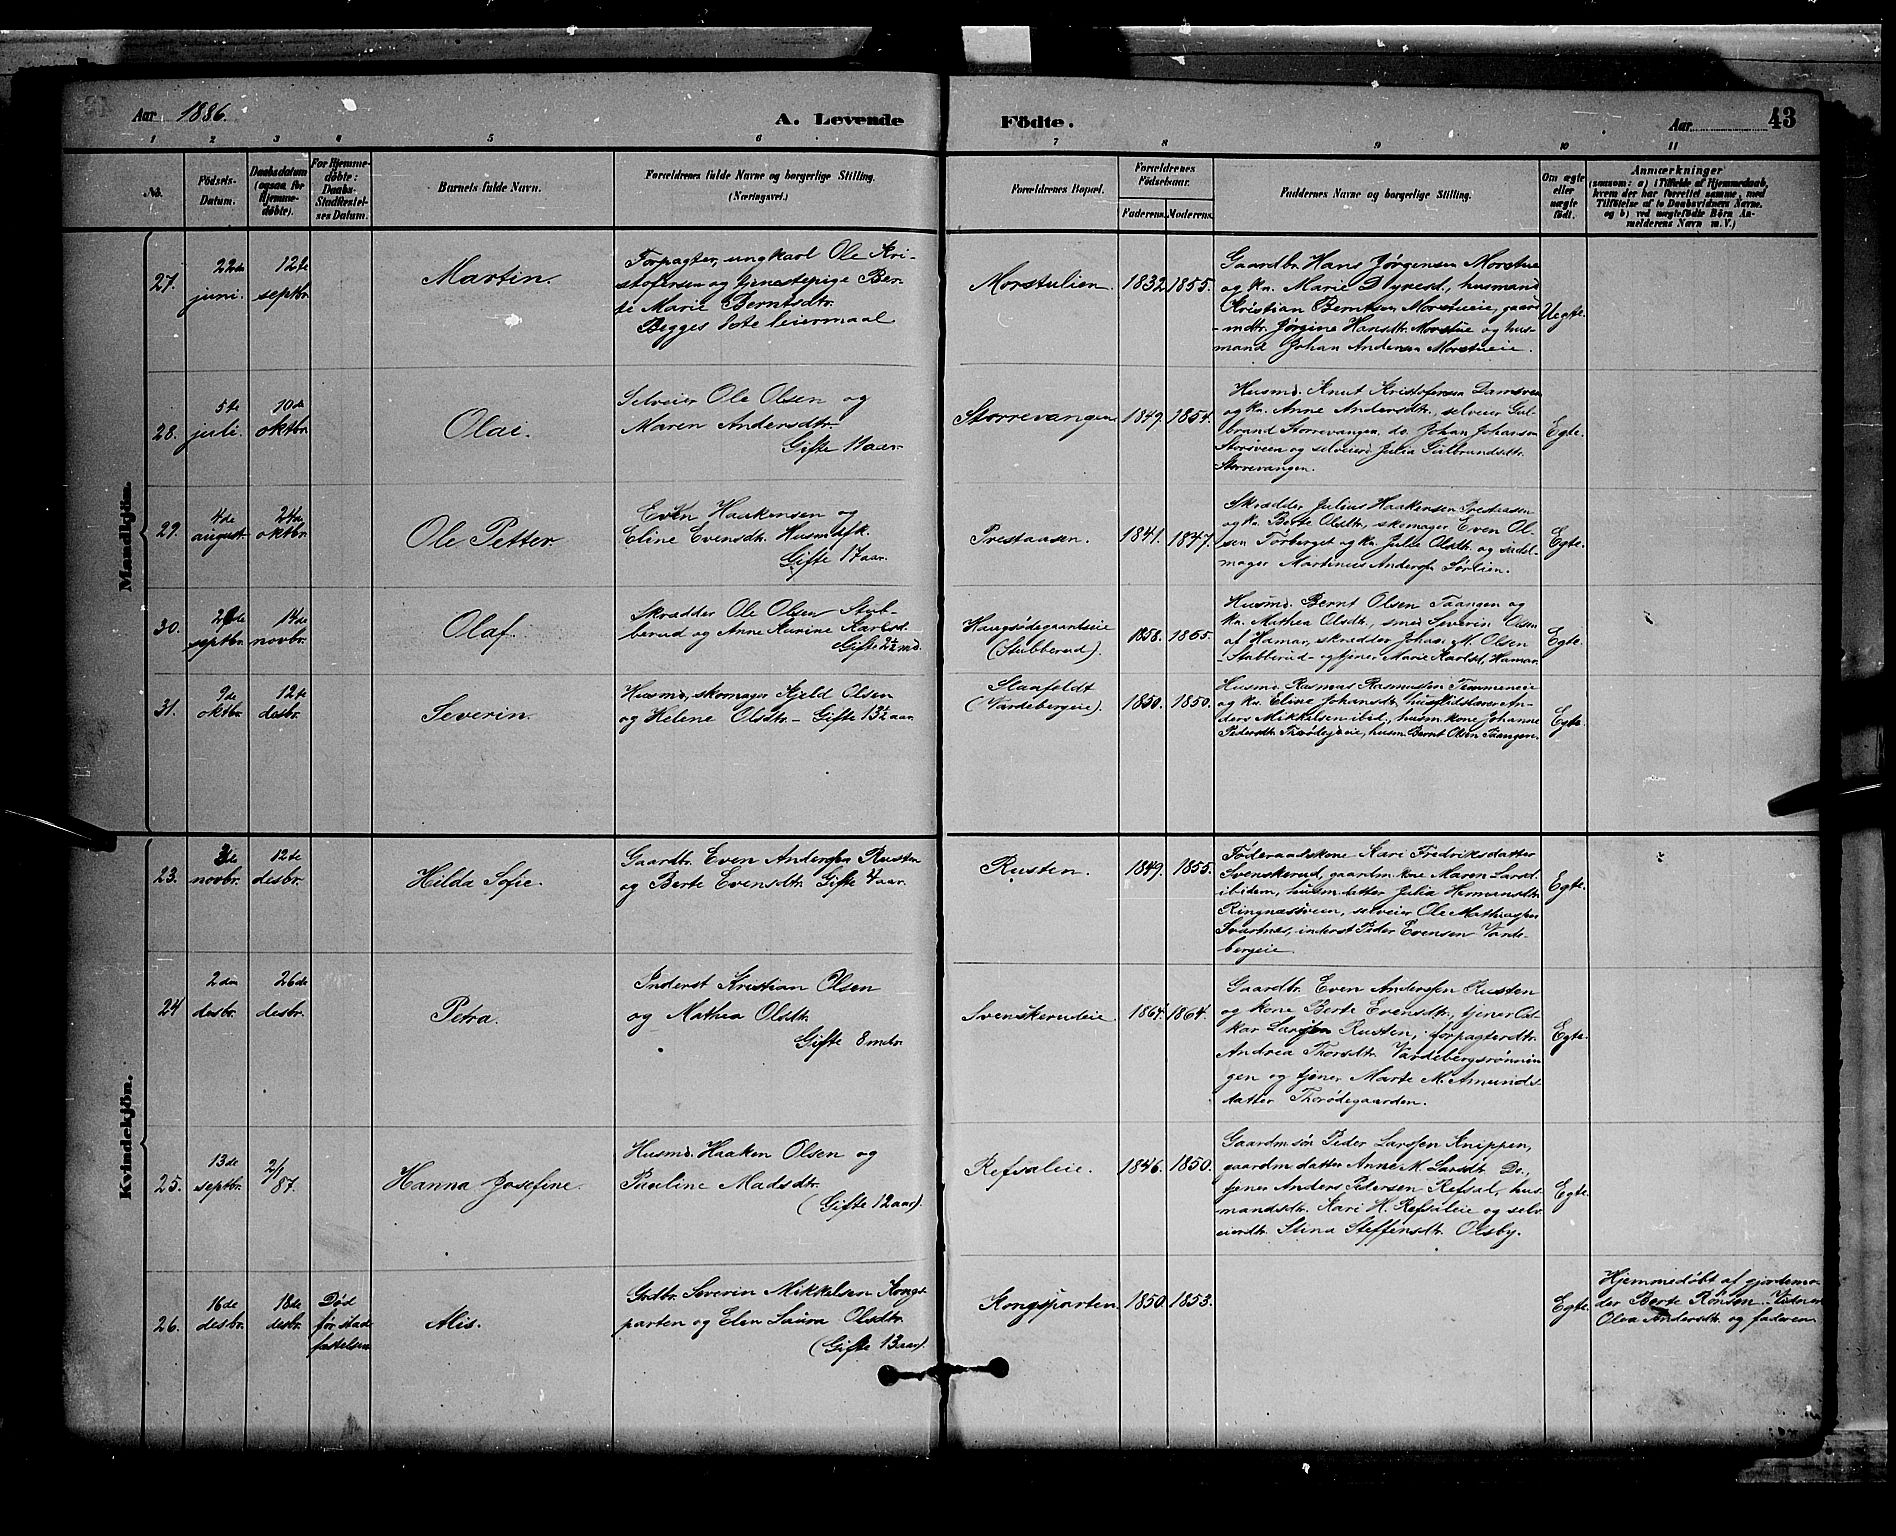 Aar 1886.
A. Levende Födte.
Aar 43
1 2 3 4 5 6 7 8 9 10 11
No.
Födsels-
Datum.
Daabsdatum
(ogsaa for
Hjemme-
döbte).
For Hjemme-
døbte:
Daabs-
Stadfæstel-
ses Datum.
Barnets fulde Navn.
Forældrenes fulde Navne og borgerlige Stilling.
(Næringsvei.)
Forældrenes Bopæl.
Forældrenes
Födselsaar.
Faderens. Moderens.
Faddernes Navne og borgerlige Stilling.
Om ægte
eller
uægte
födt.
Anmærkninger
(saasom: a) i Tilfælde af Hjemmedaab,
hvem der har forrettet samme, med
Tilföielse af to Daabsvidners Navne,
og b) ved uægtefödte Börn An-
melderens Navn m. V.)
Mandkjön.
27.
22de
juni.
12te
septbr.
Martin.
Forpagter, ungkarl Ole Kri-
stofersen og tjenestepige Ber-
te Marie Berntsdtr.
Begges 1ste leiermaal
Morstulien.
1832 1855.
Gaardbr. Hans Jørgensen Morstue
og kn. Marie Dyresd., husmand
Kristian Berntsen Morstueie, gaard-
mdtr. Jørgine Hansdtr. Morstue og hus-
mand Johan Andersen Morstueie.
Uegte.
28.
5te
juli.
10de
oktbr.
Olai.
Selveier Ole Olsen og
Maren Andersdtr.
Gifte 11 aar.
Storrevangen
1849. 1854.
Husmd. Knut Kristofersen Damsveen
og kn. Anne Andersdtr., selveier Gul-
brand Storrevangen, do. Johan Johansen
Storsveen og selveierd. Julia Gulbrandsdtr.
Storrevangen.
Egte.
29.
4de
august
24de
oktbr.
Ole Petter.
Even Haakensen og
Eline Evensdtr. Husmdfk.
Gifte 17 aar.
Prestaasen.
1841. 1847.
Skrædder Julius Haakensen Prestaasen
og kn. Berte Olsdtr. skomager Even Ol-
sen Torberget og kn. Julie Olsdtr. og sadel-
mager Martinius Andersen Sørlien.
Egte.
30.
septbr.
14de
novbr.
Olaf.
Skrædder Ole Olsen Stub-
berud og Anne Karine Karlsd.
Gifte 2½ md.
Haugsødegaardseie
(Stubberud).
1858. 1855.
Husmd. Bernt Olsen Taangen og
kn. Mathea Olsdtr., smed Severin Olsen
af Hamar, skrædder Johan M. Olsen
Stubberud og tjener Marie Karlsd. Hamar.
Egte.
31.
9de
oktbr.
12te
desbr.
Severin.
Husmd., skomager Kjeld Olsen
og Helene Olsdtr. – Gifte 13½ aar.
(Vardebergeie).
1850. 1850.
Husmd. Rasmus Rasmussen Temmeneie
og kn. Eline Johansdtr. husflidslærer An-
ders Mikkelsen ibid., husm.kone Johanne
Pedersdtr. Thorødeie, husm. Bernt Olsen Taangen.
Egte.
Kvindekjön.
23.
3de
novbr.
12te
desbr.
Hilda Sofie.
Gaardbr. Even Andersen Rusten
og Berte Evensdtr. Gifte 4 aar.
Rusten.
1849. 1855.
Føderaadskone Kari Fredriksdatter
Svenskerud, gaardm.kone Maren Larsd.
ibidem, husm.datter Julia Hermansdtr.
Ringnæssveen, selveier Ole Mathiassen
Svartnes, inderst Peder Evensen Varde-
bergeie
Egte.
24
2den
desbr.
26de
desbr.
Petra.
Inderst Kristian Olsen
og Mathea Olsdtr.
Gifte 8 mdr.
Svenskerudeie
1864. 1864.
Gaardbr. Even Andersen Rusten
og kone Berte Evensdtr., tjener Os-
kar Larsen Rusten, forpagterdtr.
Andrea Thorsdtr. Vardebergsrønnin-
gen og tjener Marte M. Amunds-
datter Thorødegaarden.
Egte.
25.
13de
septbr.
2/1
87.
Hanna Josefine.
Husmd. Haaken Olsen og
Pauline Madsdtr.
(Gifte 12 aar).
Refsaleie.
1846. 1850.
Gaardm.søn Peder Larssen Knippen,
gaardm.datter Anne M. Larsdtr. Do.,
tjener Anders Pedersen Refsal, hus-
mandsdtr. Kari H. Refsaleie og selv-
eierdtr. Stina Steffensdtr. Olsby.
Egte.
26.
16de
desbr.
18de
desbr.
Død
før stad-
fæstelsen
Mis.
Grdbr. Severin Mikkelsen Kongs-
parten og Elen Laura Olsdtr.
(Gifte 13 aar).
Kongsparten
1850. 1853.
Egte.
Hjemmedøbt af gjordemo-
der Berte Rønsen. Vidner
Olea Andersdtr. og faderen